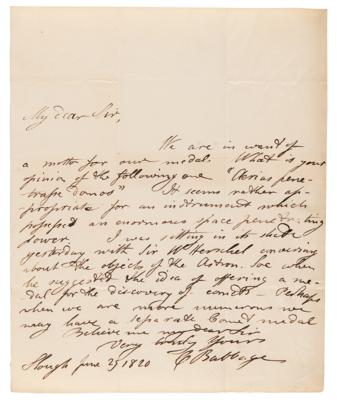 My dear Sir,
We are in want of
a motto for our medal. What is your
opinion of the following one "Aerias pene-
trasse domos" It seems rather ap-
propriate for an instrument which
possessed an enormous space penetrating
power. I was sitting in
yesterday with Sir Wm Herschel conversing
about the objects of the Astron. Soc when
he suggested the idea of offering a me-
dal for the discovery of comets - Perhaps
when we are more numerous we
may have a separate Comet medal
Believe me my dear Sir
Very truly Yours
C Babbage
Slough June 25 1820